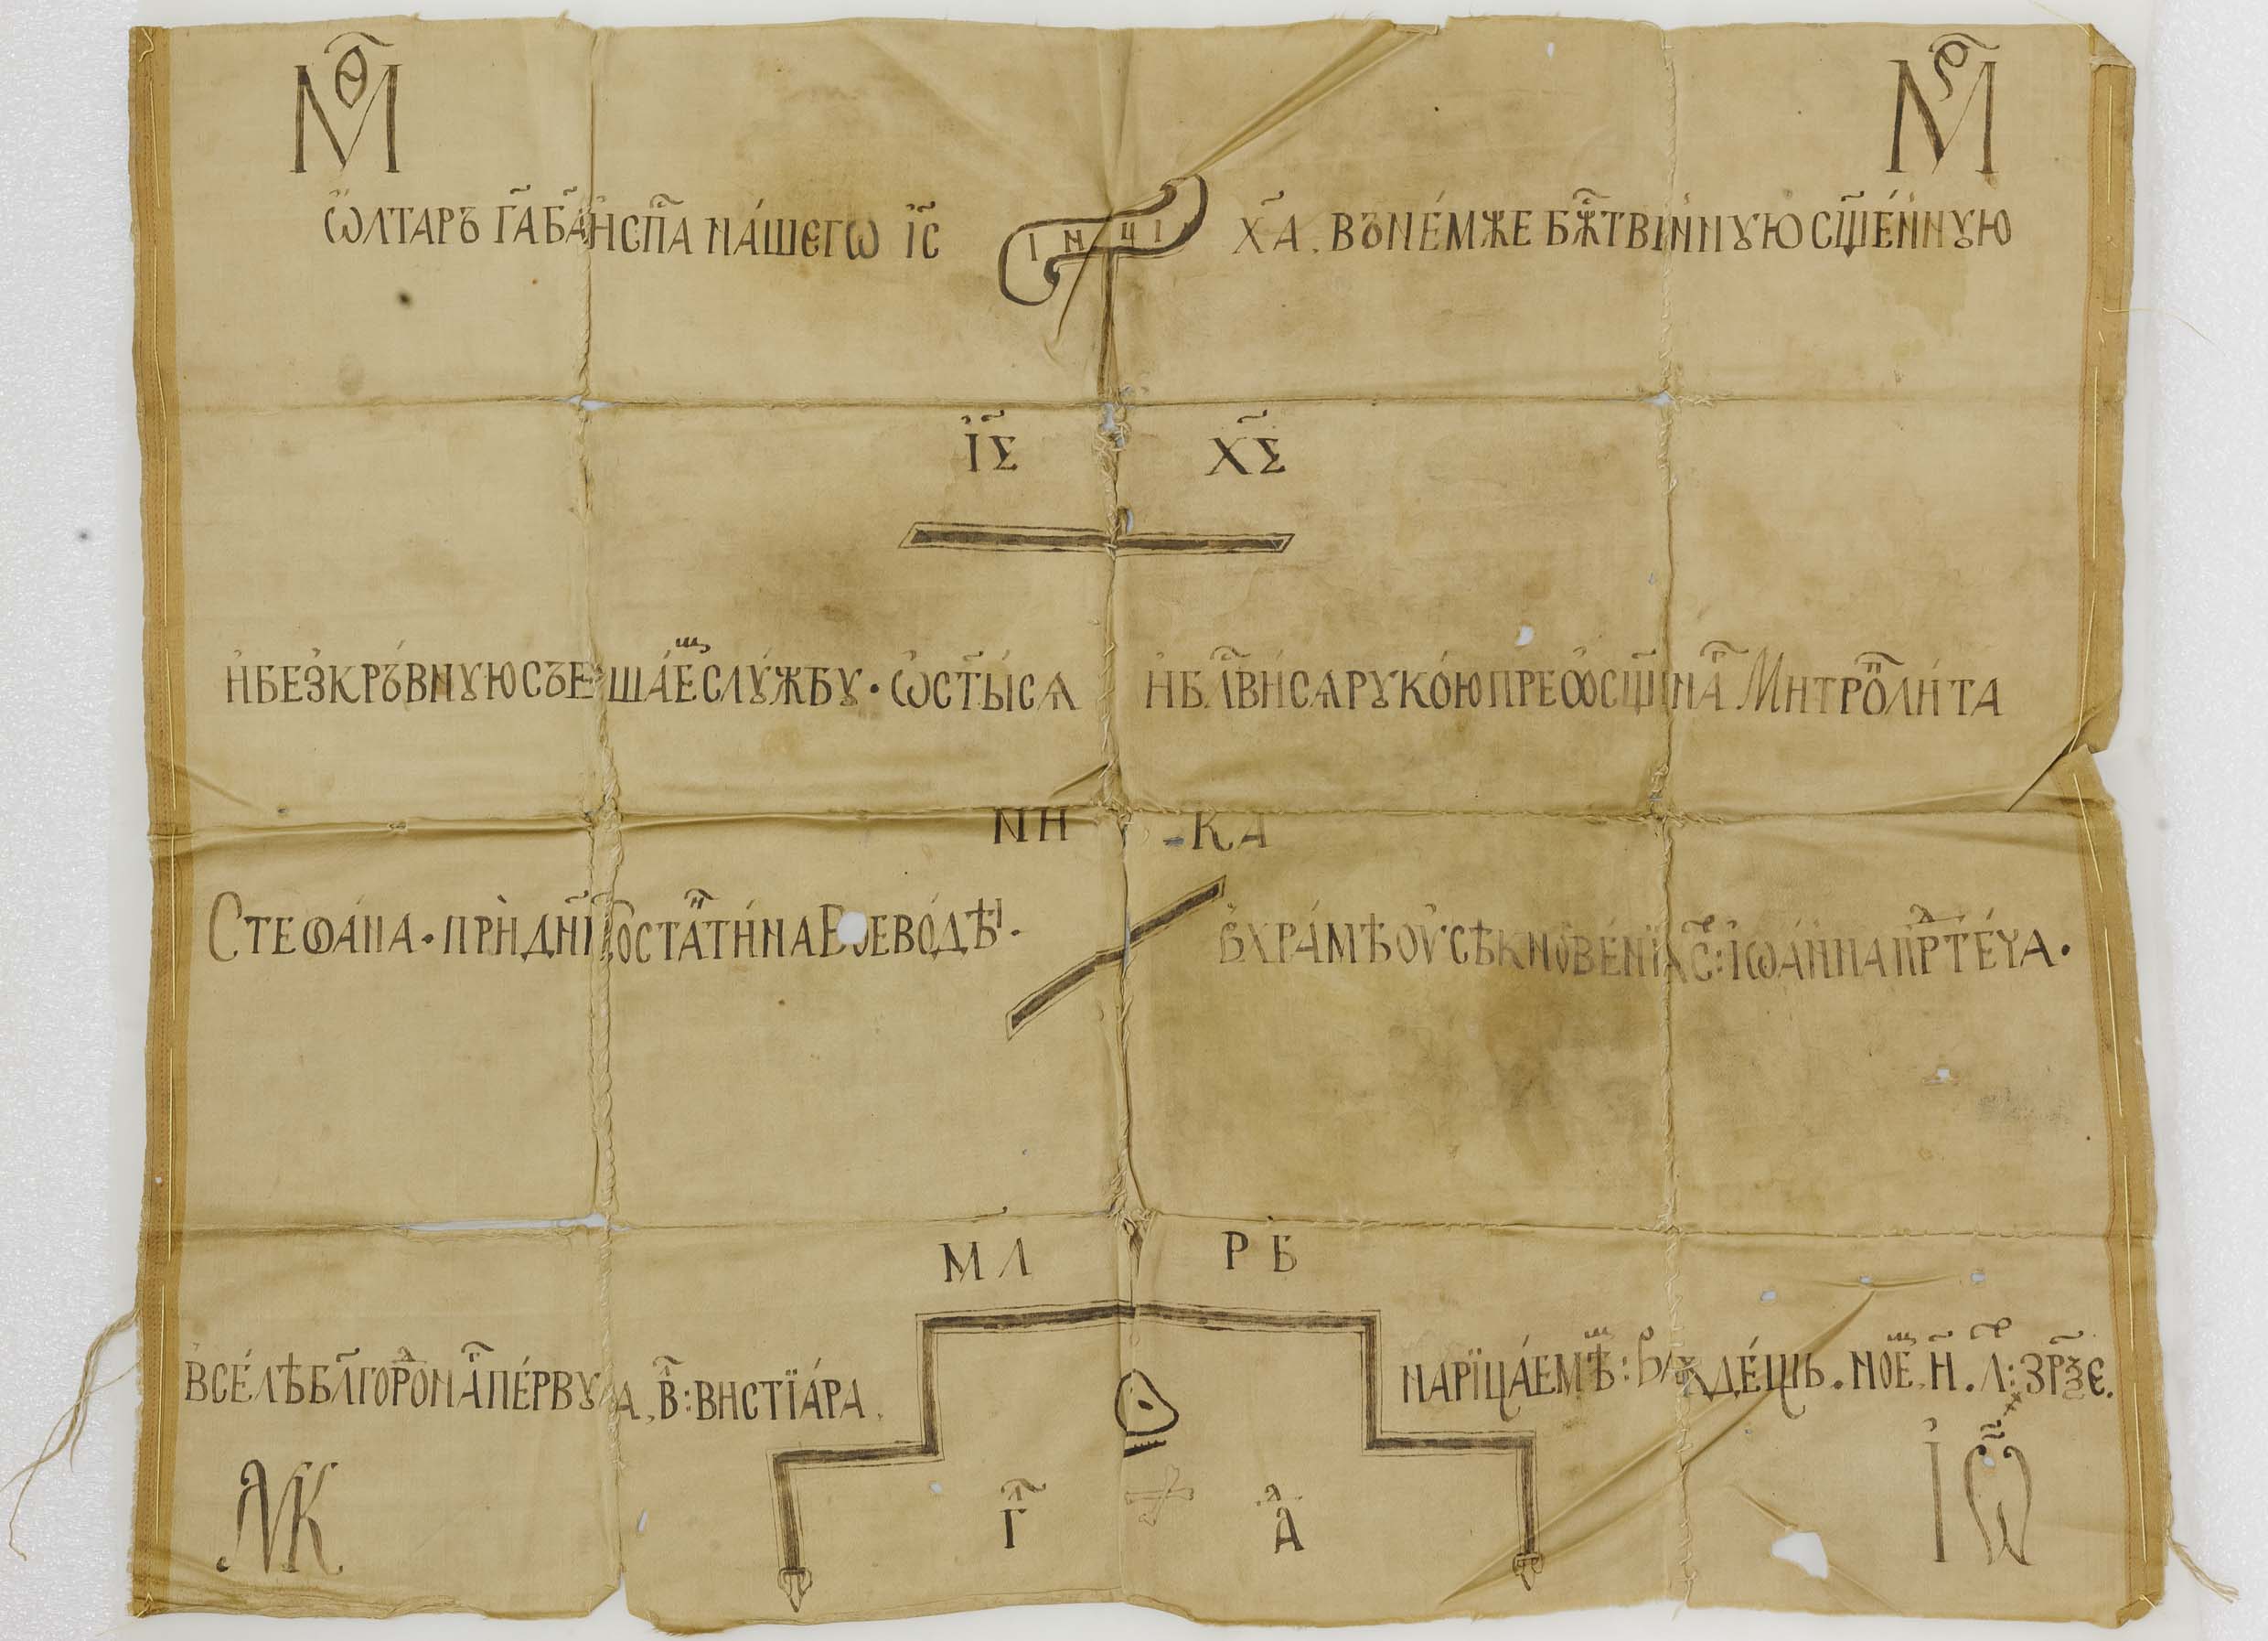 М҃Ѳ М҃Р
Ѡ҆ЛТАРЪ Г҃А Б҃А Н҆СП҃А НА́ШЕГѠ І҆С҃ ІНЦІ Х҃А. ВЪНЕ́МЖЕ БЖ҃ТВІННꙊЮ СЩ҃Е́ННꙊЮ
І҆С҃ Х҃С
Н҆БЕЗ̾КРЪ́ВНꙊЮ СЪЕ ША́Е СЛꙊ́ЖБꙊ · Ѡ҆СТ҃Ы́СѦ Н҆БЛ҃ВН́СѦ РꙊКО́Ю ПРЕѠСЩ҃ІНА МНТРОЛН́ТА
НН КА
СТЕѲА́НА · ПРН̀ ДН҃І КОСТАТН́НА ВОЕВО́ДѢ · В̾ХРА́МѢ ОУ҆СѢКНОВЕ́НЇѦ С҃: І҆ѠА́ННА ПРТЕ́ЧА ·
МЛ РБ
В̾СЕ́ЛѢ БЛ҃ГОРОНА ПЕ́РВꙊ А, В҃: ВНСТЇА́РА. НАРЇЦА́ЕМѢ: ДЕ́ЩЬ. НОЕ, Н҃. Л҃: ЗРѮЕ.
МК Г҃ А҃ І҆Ѡ҃